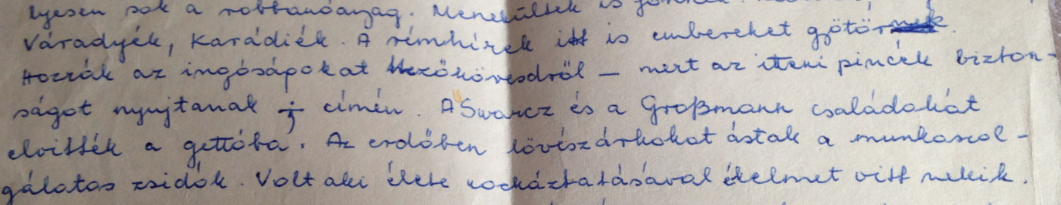 lyesen sok a robbanóanyag. Menekültek is
Váradyék, Karádiék. A rémhírek itt is embereket gyötör
Hozzák az ingóságokat Mezőkövesdről – mert az itteni pincék bizton-
ságot nyujtanak ; címén. A Swarcz és a Großmann családokat
elvitték a gettóba. Az erdőben lövészárkokat ástak a munkaszol-
gálatos zsidók. Volt aki élete kockáztatásával élelmet vitt nekik.